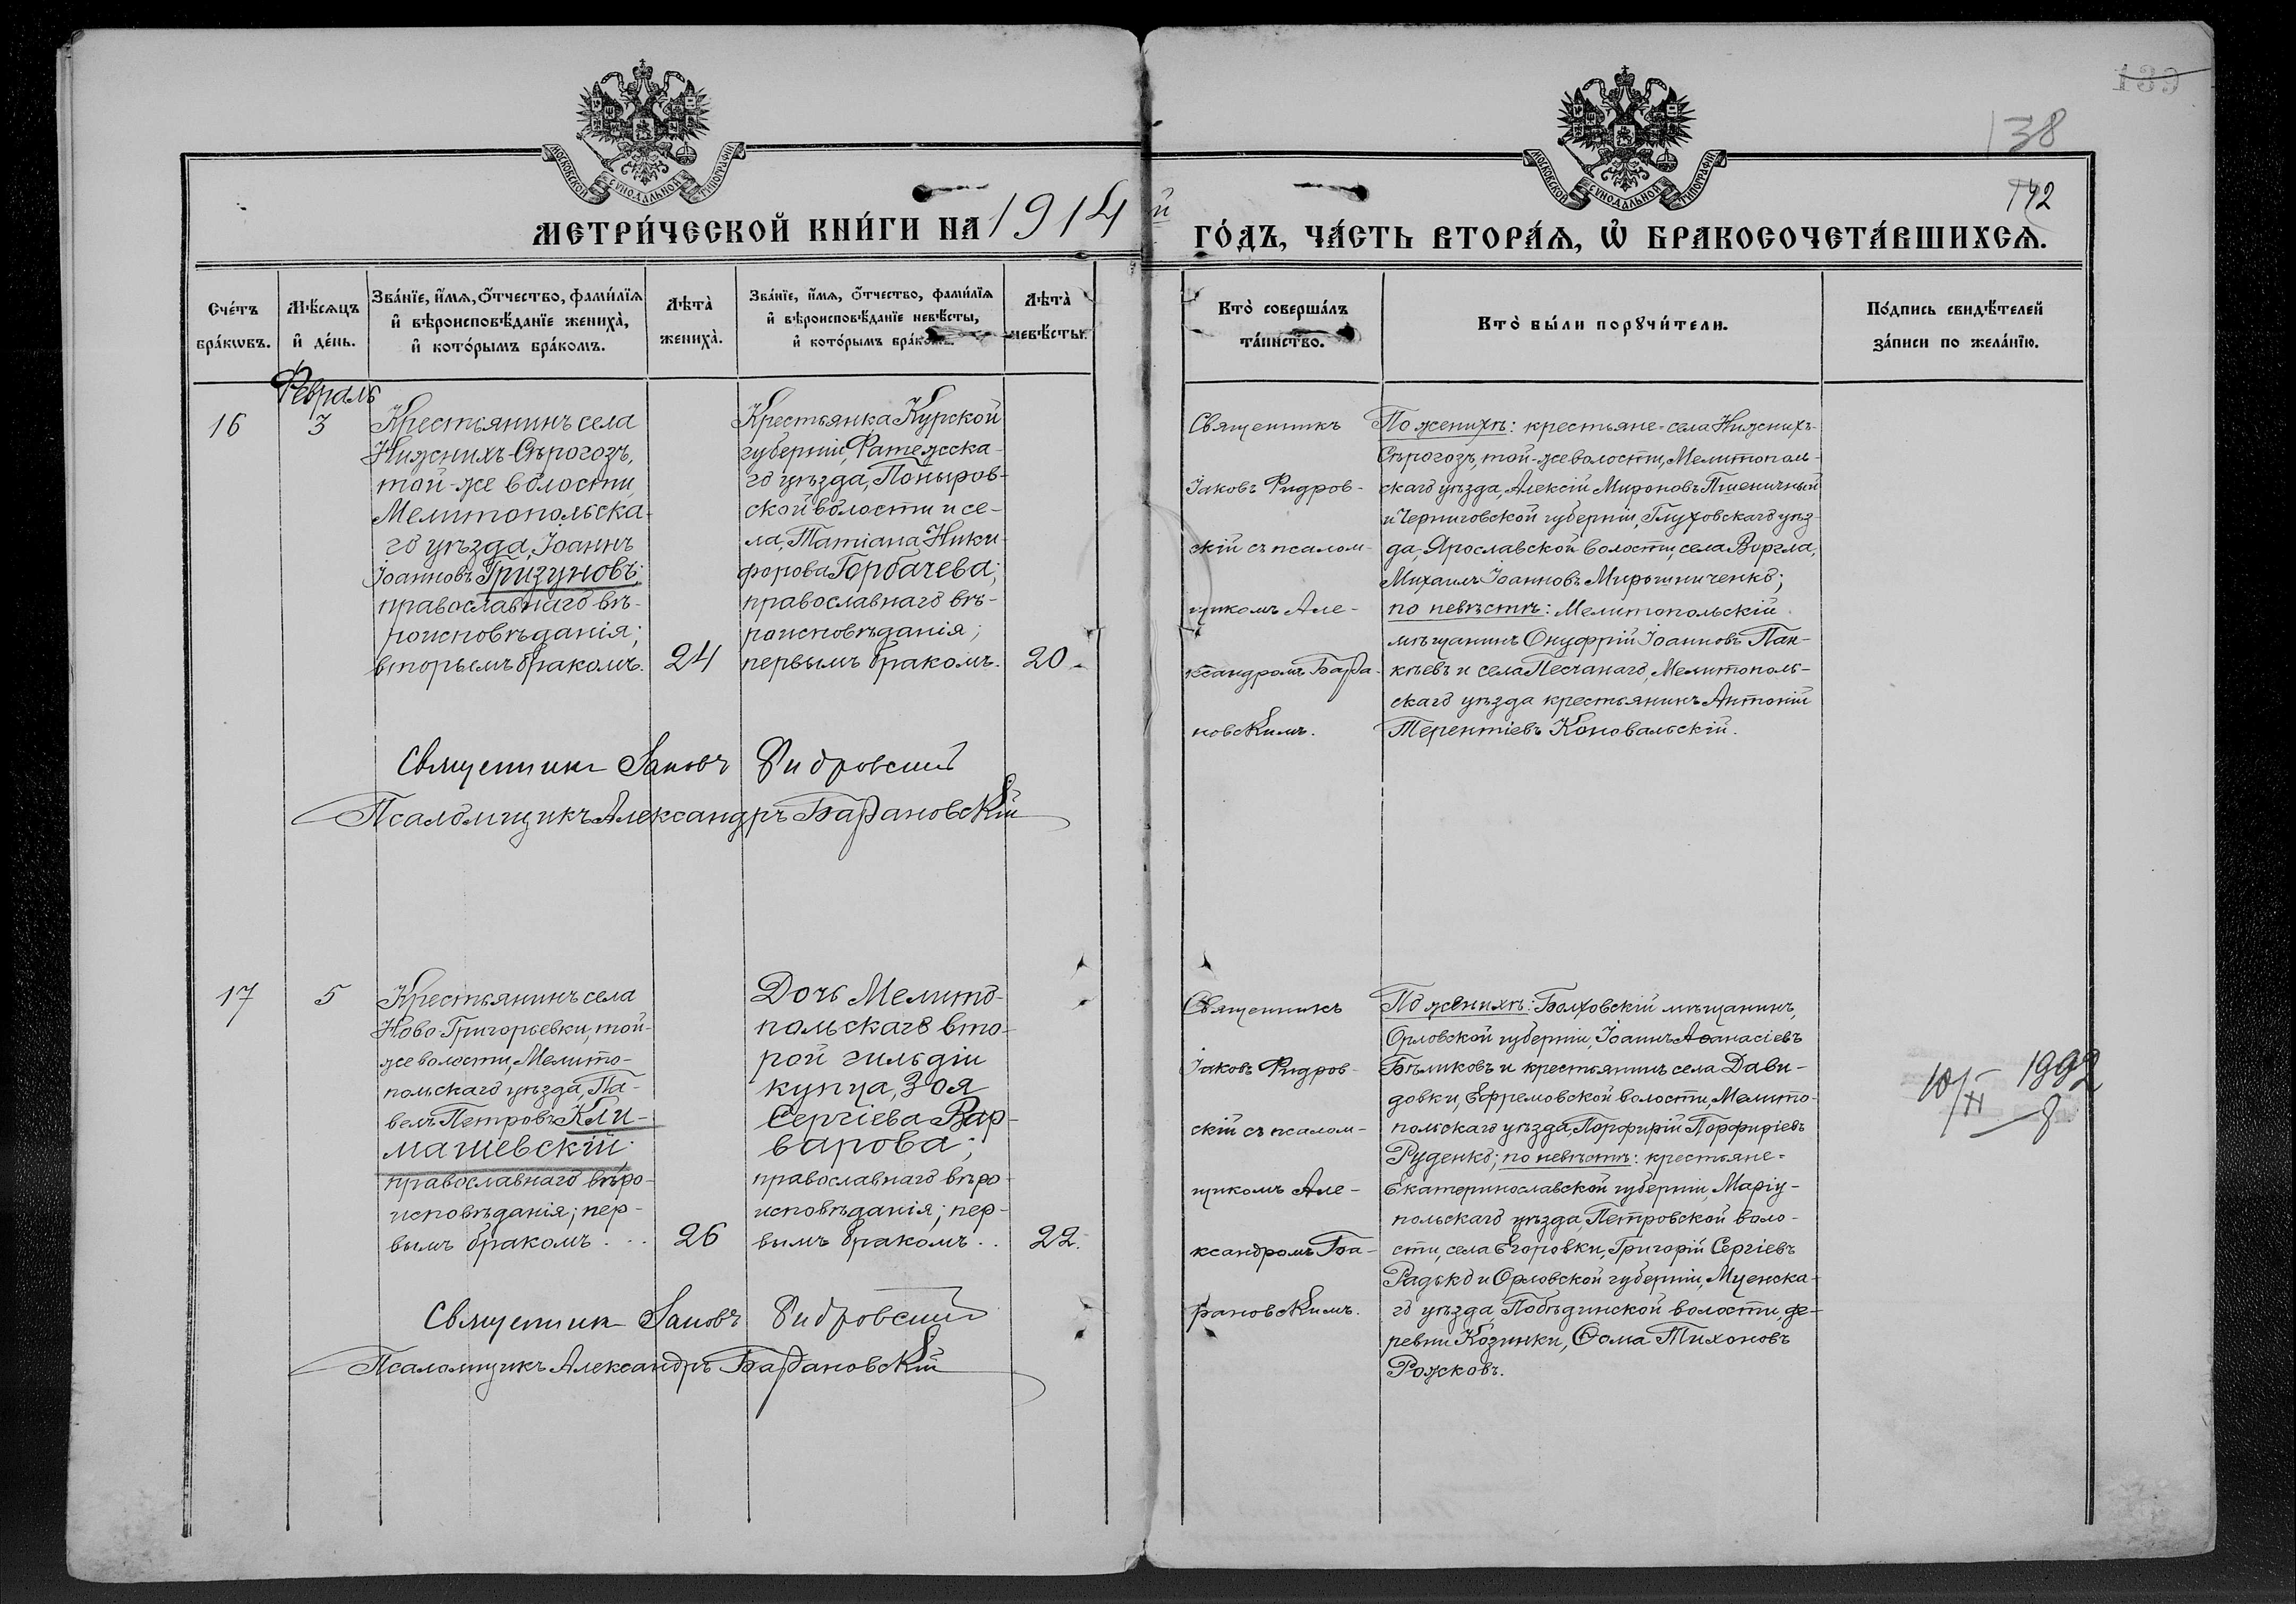 139
138
142
МОСКОВСКОЙ СѴНОДАЛЬНОЙ ТИПОГРАФІИ
МОСКОВСКОЙ СѴНОДАЛЬНОЙ ТИПОГРАФІИ
МЕТРИ́ЧЕСКОЙ КНИ́ГИ НА 1914 й ГО́ДЪ, ЧА́СТЬ ВТОРА́Ѧ, Ѽ БРАКОСОЧЕТА́ВШИХСѦ.
Сче́тъ бра́кѡвъ.
Мѣ́сѧцъ и҆ де́нь.
Зва́нїе, и҆́мѧ, ѻ҆́тчество, фами́лїѧ
и҆ вѣроисповѣ́данїе жениха̀,
и҆ кото́рымъ бра́комъ.
Лѣта̀ жениха̀.
Зва́нїе, и҆́мѧ, ѻ҆́тчество, фами́лїѧ
и҆ вѣроисповѣ́данїе невѣ́сты,
и҆ кото́рымъ бра́комъ.
Лѣта̀ невѣ́сты.
Кто̀ соверша́лъ
та́инство.
Кто̀ бы́ли порꙋчи́тели.
По́дпись свидѣ́телей
за́писи по жела́нїю.
Февраль
16
3
Крестьянинъ села
Нижнихъ-Сѣрогозъ,
той-же волости
Мелитопольска-
го уѣзда, Іоаннъ
Іоанновъ Гризуновъ;
православнаго вѣ-
роисповѣданія;
вторымъ бракомъ.
24
Крестьянка Курской
губерніи, Фатежска-
го уѣзда, Поныров-
ской волости и се-
ла, Татіана Ники-
форова Горбачева;
православнаго вѣ-
роисповѣданія;
первымъ бракомъ.
20.
Священникъ
Іаковъ Фидров-
скій съ псалом-
щикомъ Але-
ксандромъ Бара-
новскимъ.
По женихѣ: крестьяне-села Нижнихъ-
Сѣрогозъ, той-же волости, Мелитополь-
скаго уѣзда, Алексій Мироновъ Пшеничный
и Черниговской губерніи, Глуховскаго уѣз-
да, Ярославской волости, села Воргла,
Михаилъ Іоанновъ Мирошниченко;
по невѣстѣ: Мелитопольскій
мѣщанинъ Онуфрій Іоанновъ Пан-
кѣевъ и села Песчанаго, Мелитополь-
скаго уѣзда крестьянинъ Антоній
Терентіевъ Коновальскій.
Священникъ Іаковъ Фидровскій
Псаломщикъ Александръ Барановскій
17
5
Крестьянинъ села
Ново-Григорьевки, той-
же волости, Мелито-
польскаго уѣзда, Па-
велъ Петровъ Кли-
машевскій;
православнаго вѣро-
исповѣданія; пер-
вымъ бракомъ...
26
Дочь Мелито-
польскаго вто-
рой гильдіи
купца, Зоя
Сергіева Вар-
варова;
православнаго вѣро-
исповѣданія; пер-
вымъ бракомъ..
22.
Священникъ
Іаковъ Фидров-
скій съ псалом-
щикомъ Але-
ксандромъ Ба-
рановскимъ.
По женихѣ: Болховскій мѣщанинъ,
Орловской губерніи, Іоаннъ Аѳанасіевъ
Бѣликовъ и крестьянинъ села Дави-
довки, Ефремовской волости, Мелито-
польскаго уѣзда, Порфирій Порфиріевъ
Руденко; по невѣстѣ: крестьяне-
Екатеринославской губерніи, Маріу-
польскаго уѣзда, Петровской воло-
сти, села Егоровки, Григорій Сергіевъ
Радько и Орловской губерніи, Мценска-
го уѣзда, Побѣдинской волости, де-
ревни Козинки, Ѳома Тихоновъ
Рожковъ.
Священникъ Іаковъ Фидровскій
Псаломщикъ Александръ Барановскій